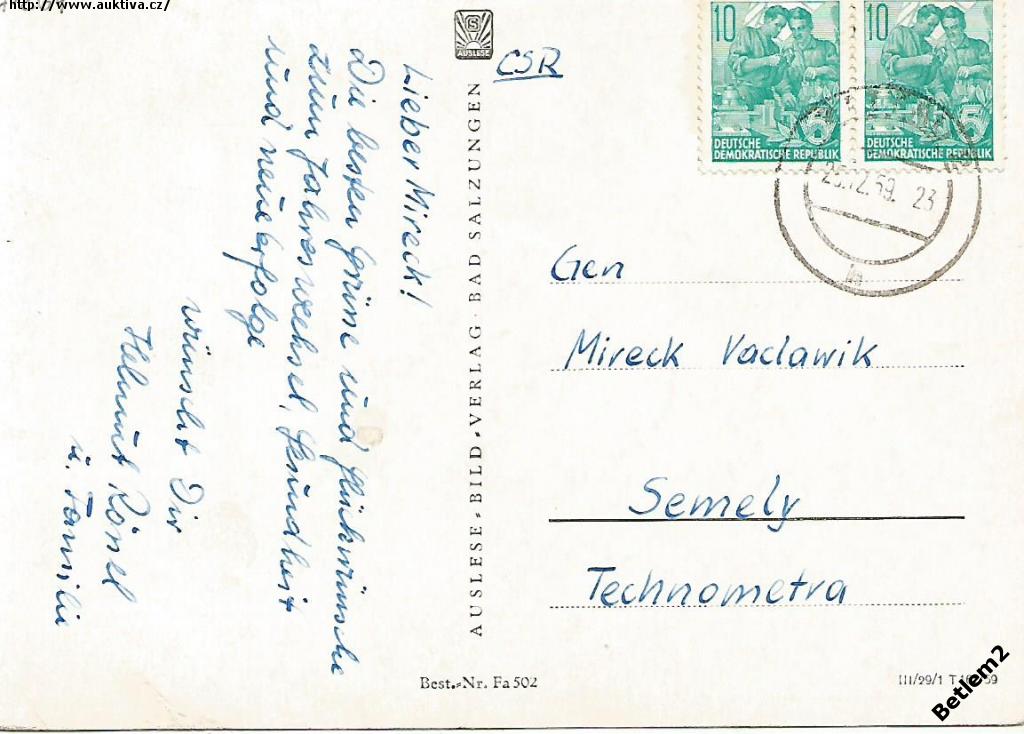 http://www.auktiva.cz/
Lieber Mireck!
Die besten Grüße und Glückwünsche
zum Jahreswechsel, Gesundheit
und neue Erfolge
wünscht Dir
Helmut Rösel
u. Familie
AUSLESE
AUSLESE-BILD-VERLAG · BAD SALZUNGEN
CSR
10
DEUTSCHE
DEMOKRATISCHE REPUBLIK
10
DEUTSCHE
DEMOKRATISCHE REPUBLIK
12.59. 23
Gen
Mireck Vaclawik
Semely
Technometra
Best.-Nr. Fa 502
III/29/1
Betlem2